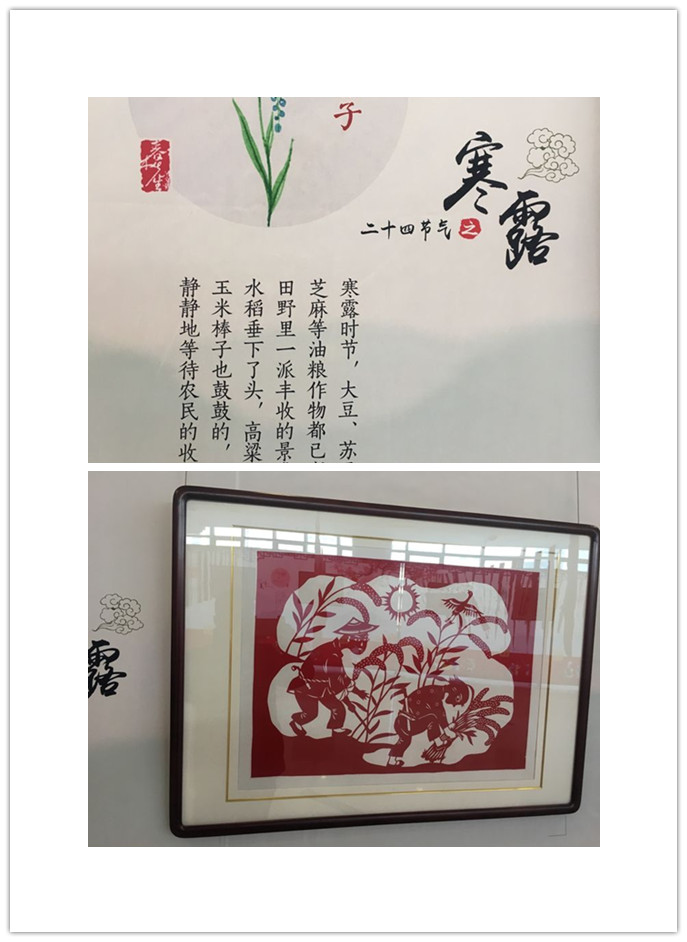 子
寒露
二十四节气之
寒露时节，大豆、苏
芝麻等油粮作物都已
田野里一派丰收的景
水稻垂下了头，高粱
玉米棒子也鼓鼓的，
静静地等待农民的收
露